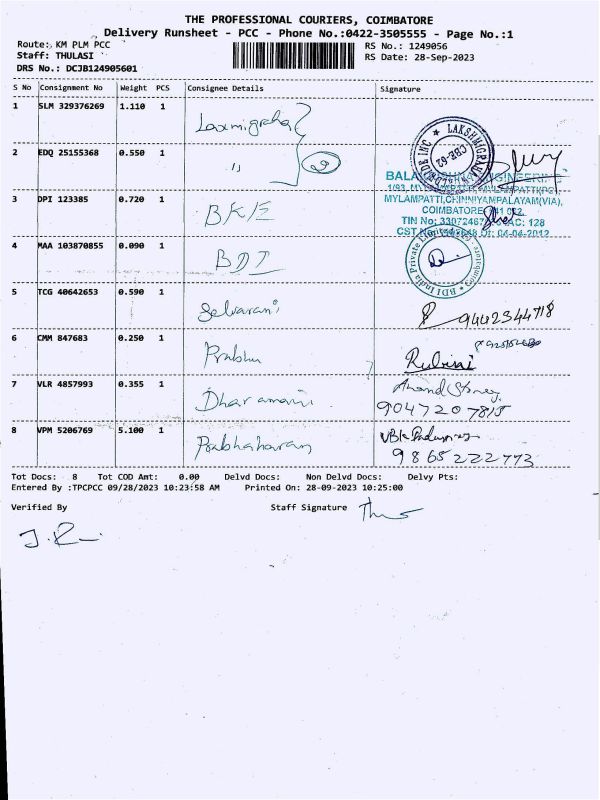 THE PROFESSIONAL COURIERS, COIMBATORE
Delivery Runsheet - PCC - Phone No.:0422-3505555 - Page No.:1
Route: KM PLM PCC
RS No.: 1249056
Staff: THULASI
RS Date: 28-Sep-2023
DRS No.: DCJB124905601
S No Consignment No Weight PCS Consignee Details Signature
1 SLM 329376269 1.110 1 Laxmigraha
2 EDQ 25155368 0.550 1 " 2
LAKSHMIGRAHA
CBE-62
3 DPI 123385 0.720 1 BKE
MYLAMPATTI,CHINNIYAMPALAYAM(VIA),
4 MAA 103870855 0.090 1 BDI
BDI India Private Limited Coimbatore
5 TCG 40642653 0.590 1 Selvarani 9442344718
6 CMM 847683 0.250 1 Prabhu
7 VLR 4857993 0.355 1 Dharamani Anand Stores
9047207815
8 VPM 5206769 5.100 1 Prabhaharan
9865222773
Tot Docs: 8 Tot COD Amt: 0.00 Delvd Docs: Non Delvd Docs: Delvy Pts:
Entered By :TPCPCC 09/28/2023 10:23:58 AM Printed On: 28-09-2023 10:25:00
Verified By Staff Signature